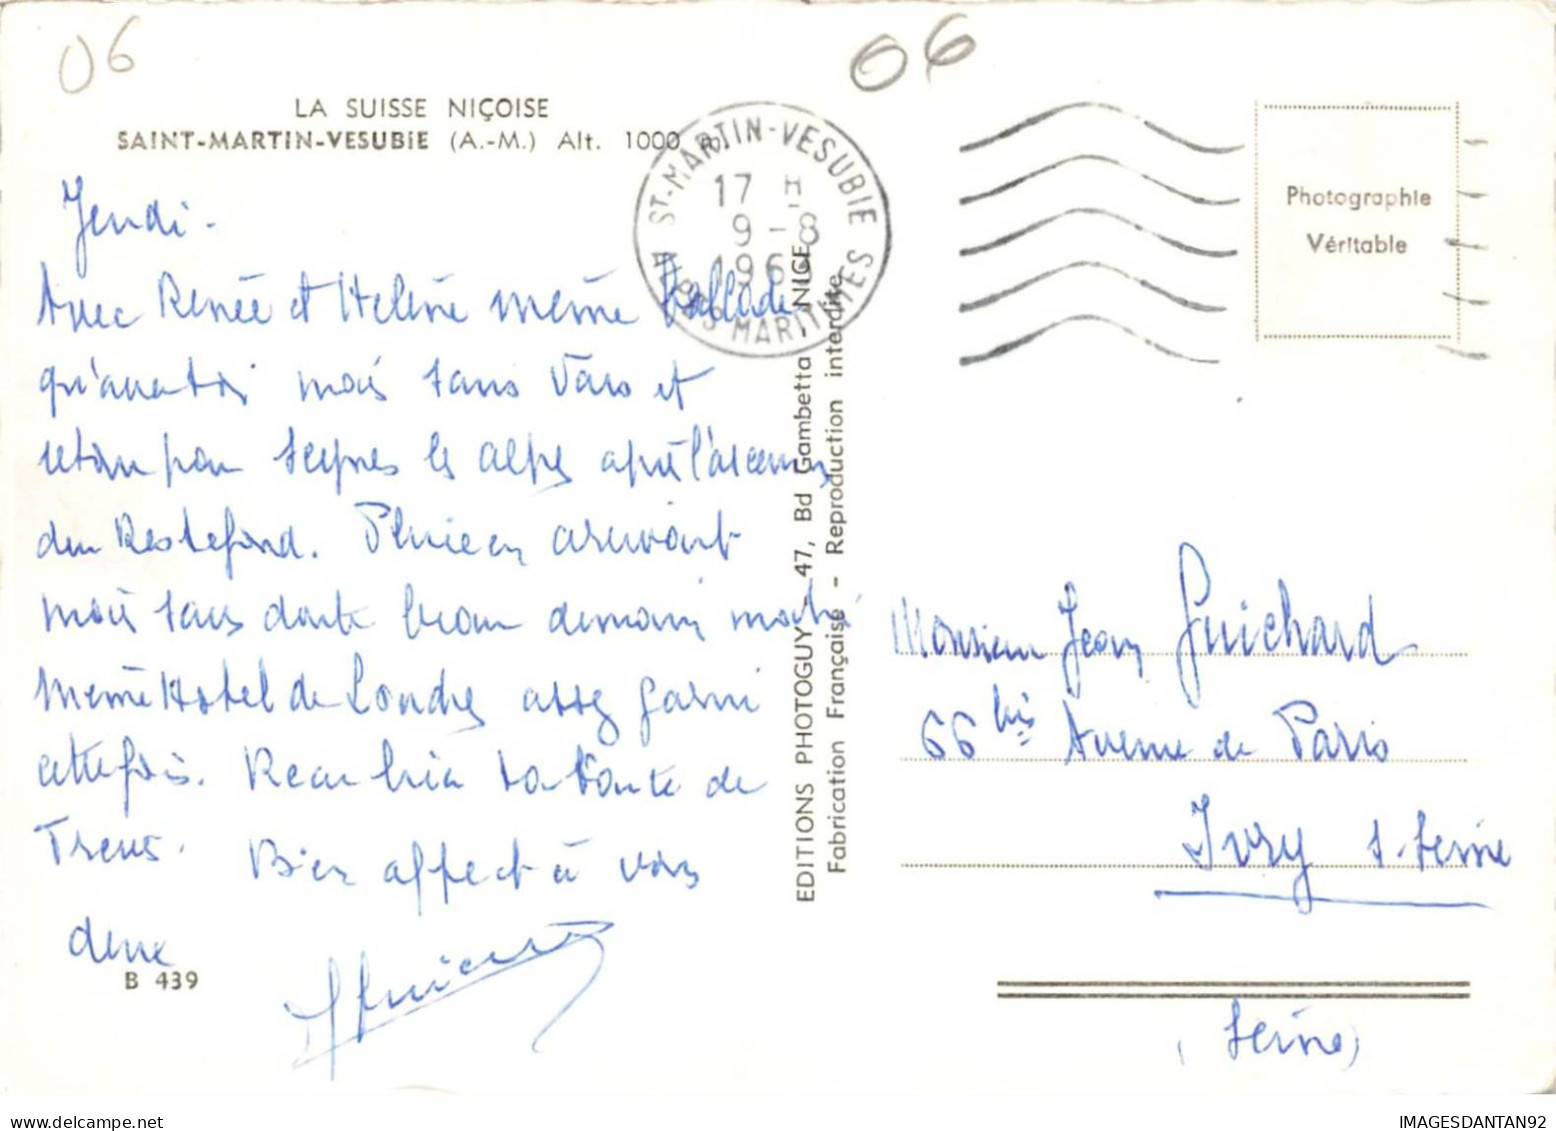 06
06
LA SUISSE NIÇOISE
SAINT-MARTIN-VESUBIE (A.-M.) Alt. 1000 m.
ST-MARTIN-VESUBIE
17 H
9-8
196
ALPES MARITIMES
Photographie
Véritable
Jeudi -
Avec Renée et Hélène même ballade
mais sans Vars et
retour par Seynes les Alpes après l'ascension
du Restefond. Pluie en arrivant
mais sans doute beau demain matin
Même Hotel de Londres assez garni
cette fois. de
Trens. Bien affect à vous
deux
B 439
EDITIONS PHOTOGUY 47, Bd Gambetta, NICE
Fabrication Française - Reproduction interdite
Monsieur Jean Guichard
66 bis Avenue de Paris
Ivry s-Seine
(Seine)
IMAGESDANTAN92